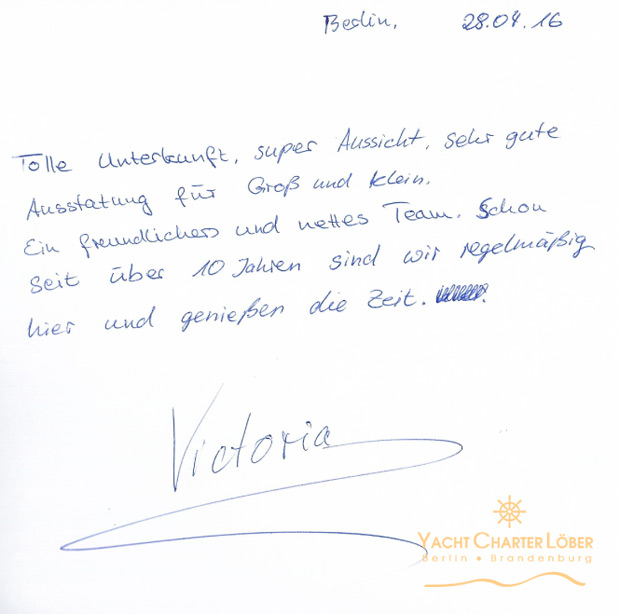 Berlin, 28.04.16
Tolle Unterkunft, super Aussicht, sehr gute
Ausstatung für Groß und klein.
Ein freundliches und nettes Team. Schon
seit über 10 Jahren sind wir regelmäßig
hier und genießen die Zeit.
Victoria
YACHT CHARTER LÖBER
Berlin • Brandenburg